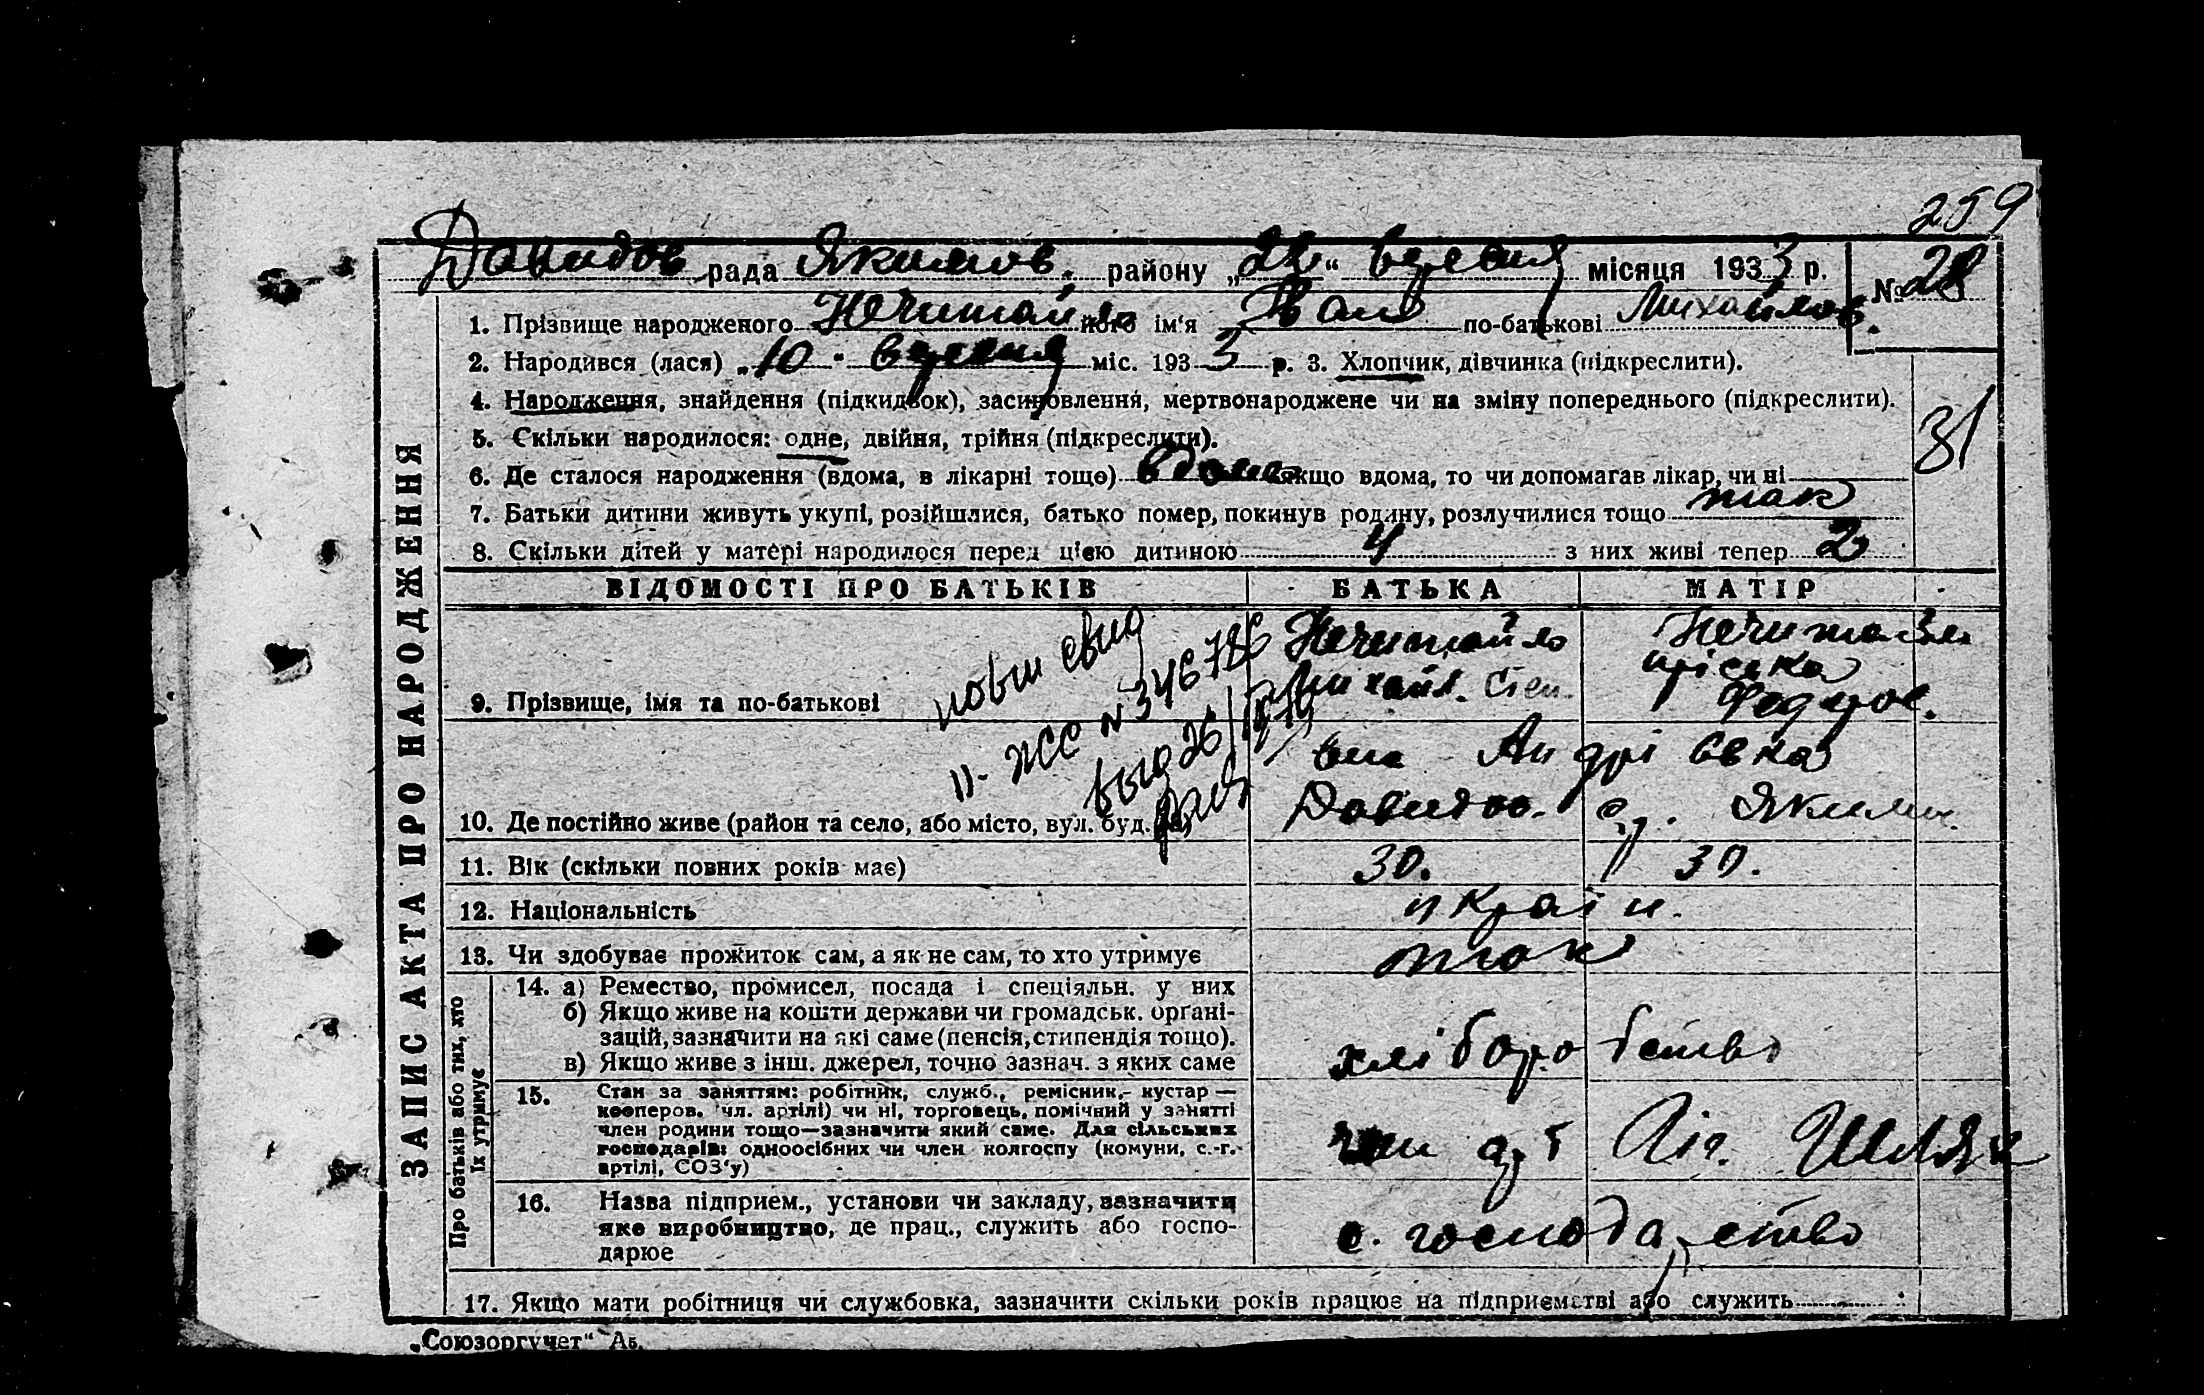 259
Давидов рада Якимов. району „22“ вересня місяця 1933 р. № 28
1. Прізвище народженого Нечитайло його ім‘я Іван по-батькові Михайлов.
2. Народився (лася) „10“ вересня міс. 1933 р. 3. Хлопчик, дівчинка (підкреслити).
4. Народження, знайдення (підкидьок), засиновлення, мертвонароджене чи на зміну попереднього (підкреслити).
31
5. Скільки народилося: одне, двійня, трійня (підкреслити).
6. Де сталося народження (вдома, в лікарні тощо) вдома якщо вдома, то чи допомагав лікар, чи ні
7. Батьки дитини живуть укупі, розійшлися, батько помер, покинув родину, розлучилися тощо так
8. Скільки дітей у матері народилося перед цією дитиною 4 з них живі тепер 2
ЗАПИС АКТА ПРО НАРОДЖЕННЯ
ВІДОМОСТІ ПРО БАТЬКІВ БАТЬКА МАТІР
9. Прізвище, імя та по-батькові
Нечитайло
Михайл. Степ.
Нечитайло
Пріська
Федоров.
II-ЖСС № 346786
10. Де постійно живе (район та село, або місто, вул. буд.
Андріївка
Давидов. Якимов.
11. Вік (скільки повних років має) 30. 30.
12. Національність україн.
13. Чи здобуває прожиток сам, а як не сам, то хто утримує так
Про батьків або тих, хто їх утримує
14. а) Ремество, промисел, посада і спеціяльн. у них
б) Якщо живе на кошти держави чи громадськ. органі-
зацій, зазначити на які саме (пенсія, стипендія тощо).
в) Якщо живе з інш. джерел, точно зазнач. з яких саме
хліборобство
15. Стан за заняттям: робітник, служб., ремісник,- кустар —
кооперов. чл. артілі) чи ні, торговець, помічний у занятті
член родини тощо—зазначити який саме. Для сільських
господарів: одноосібних чи член колгоспу (комуни, с.-г.
артілі, СОЗ‘у)
член арт Шлях
16. Назва підприєм., установи чи закладу, зазначити
яке виробництво, де прац., служить або госпо-
дарює
с. господарство
17. Якщо мати робітниця чи службовка, зазначити скільки років працює на підприємстві або служить
„Союзоргучет“